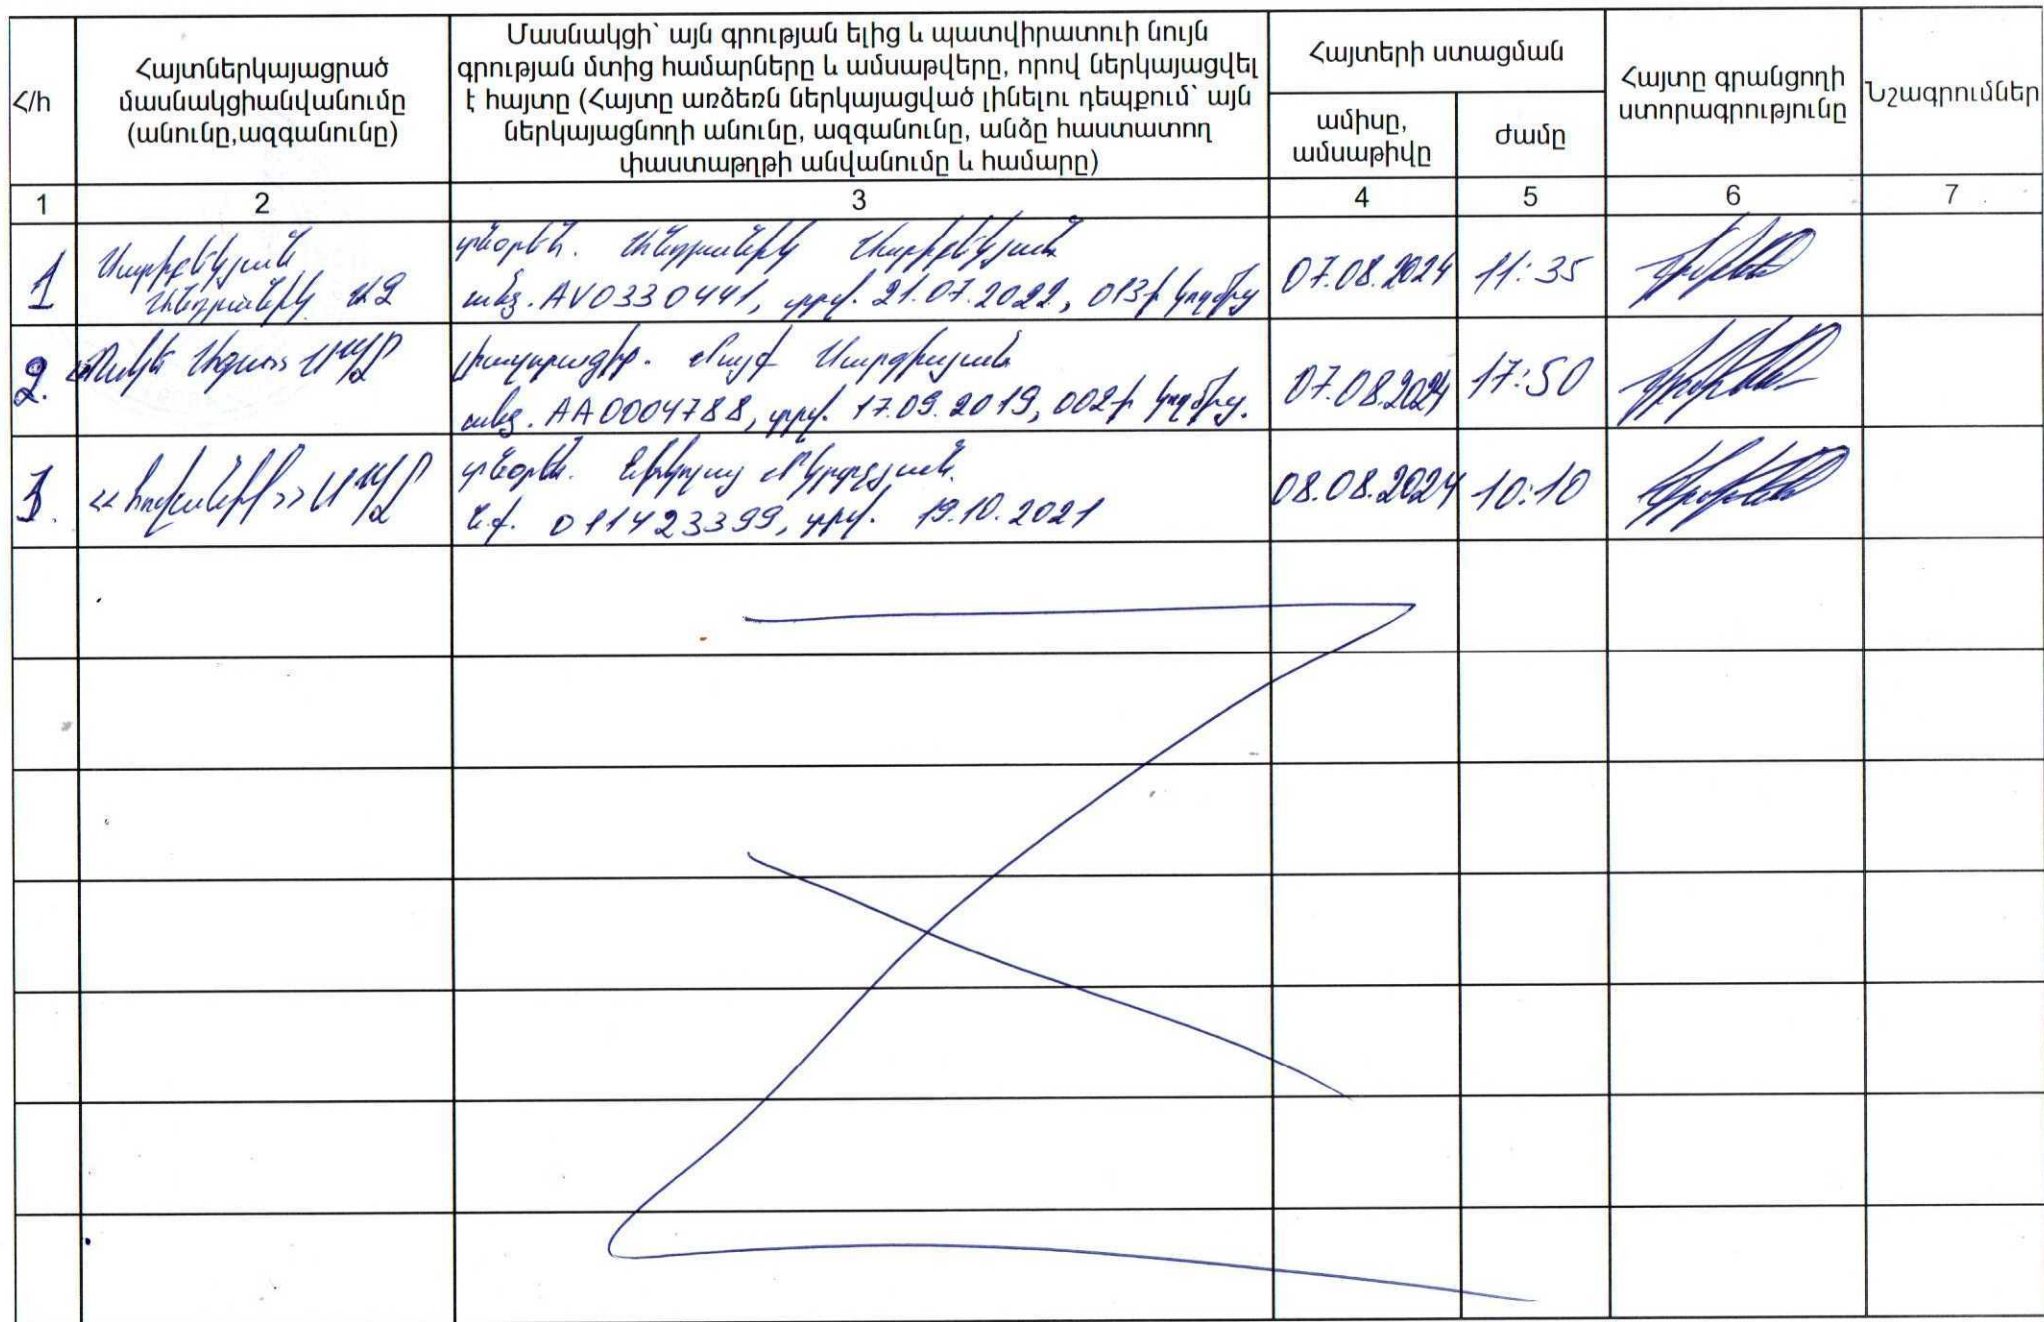 Հ/հ
Հայտներկայացրած
մասնակցիանվանումը
(անունը,ազգանունը)
Մասնակցի` այն գրության ելից և պատվիրատուի նույն
գրության մտից համարները և ամսաթվերը, որով ներկայացվել
է հայտը (Հայտը առձեռն ներկայացված լինելու դեպքում` այն
ներկայացնողի անունը, ազգանունը, անձը հաստատող
փաստաթղթի անվանումը և համարը)
Հայտերի ստացման
ամիսը,
ամսաթիվը
ժամը
Հայտը գրանցողի
ստորագրությունը
Նշագրումներ
1 2 3 4 5 6 7
1
Սարիբեկյան
Անդրանիկ ԱՁ
տնօրեն. Անդրանիկ Սարիբեկյան
անձ. AV0330441, տրվ. 21.07.2022, 013ի կողմից
07.08.2024 11:35
2.
ՍՊԸ
լիազորագիր. Սարգիսյան
անձ. AA0004788, տրվ. 17.09.2019, 002ի կողմից.
07.08.2024 17:50
3.
<<Հովանիլ>> ՍՊԸ
տնօրեն. Մկրտչյան
ն.ք. 011423399, տրվ. 19.10.2021
08.08.2024 10:10